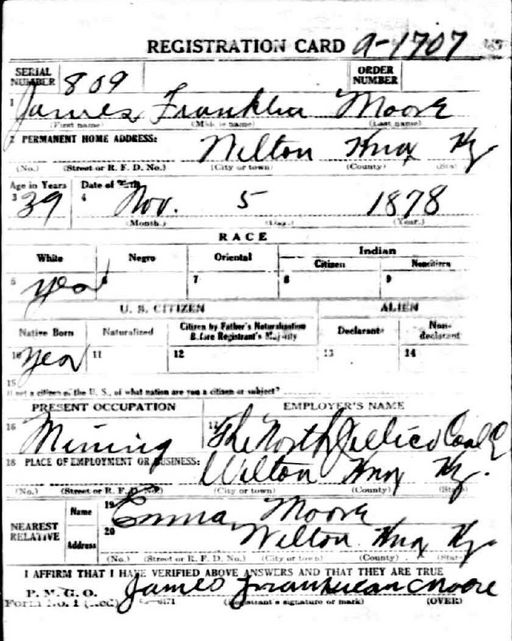 REGISTRATION CARD a-1707
SERIAL NUMBER 809 ORDER NUMBER
1 James Franklin Moore
(First name) (Middle name) (Last name)
2 PERMANENT HOME ADDRESS: Wilton Knox Ky.
(No.) (Street or R. F. D. No.) (City or town) (County) (State)
Age in Years Date of Birth
3 39 4 Nov. 5 1878
(Month.) (Day.) (Year.)
RACE
White Negro Oriental Indian
Citizen Noncitizen
5 yes 6 7 8 9
U. S. CITIZEN ALIEN
Native Born Naturalized Citizen by Father's Naturalization Before Registrant's Majority Declarant Non-declarant
10 yes 11 12 13 14
15
If not a citizen of the U. S., of what nation are you a citizen or subject?
PRESENT OCCUPATION EMPLOYER'S NAME
16 Mining 17 The North Jellico Coal Co
18 PLACE OF EMPLOYMENT OR BUSINESS: Wilton Knox Ky.
(No.) (Street or R. F. D. No.) (City or town) (County) (State)
NEAREST RELATIVE Name 19 Emma Moore
Address 20 Wilton Knox Ky.
(No.) (Street or R. F. D. No.) (City or town) (County) (State)
I AFFIRM THAT I HAVE VERIFIED ABOVE ANSWERS AND THAT THEY ARE TRUE
P. M. G. O.
Form No. 1 (Red) James Franklean Moore
(Registrant's signature or mark) (OVER)